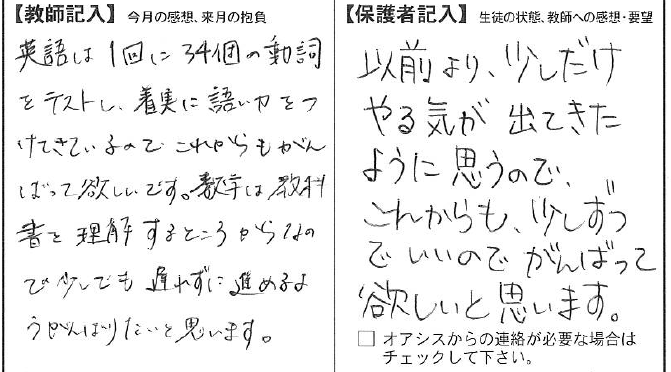 【教師記入】 今月の感想、来月の抱負
英語は1回に34個の動詞
をテストし、着実に語い力をつ
けてきているので これからもがん
ばって欲しいです。数学は教科
書を理解するところからなの
で少しでも遅れずに進めるよ
うがんばりたいと思います。
【保護者記入】 生徒の状態、教師への感想・要望
以前より、少しだけ
やる気が 出てきた
ように思うので、
これからも、少しずつ
でいいので がんばって
欲しいと思います。
□ オアシスからの連絡が必要な場合は
チェックして下さい。